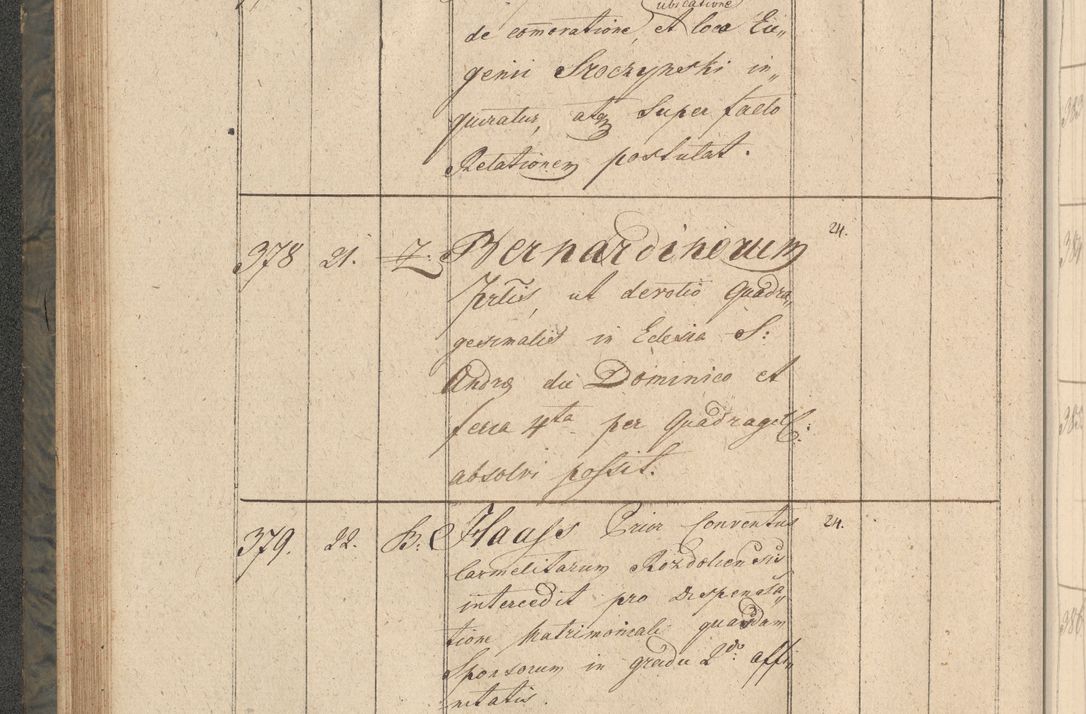 ubicatione
de comoratione, et loco Eu„
genii Sroczynski in„
quiratur, atq super facto
Relationem postulat.
378 21. Z Bernardinorum 24.
ut devotio Quadra„
gesimalis in Eclesia S:
Andreæ die Dominico et
feria 4ta per Quadrages:
absolvi possit.
379. 22. B: Haass Prior Conventus 24.
Carmelitarum Rozdolien sis
intercedit pro dispensa„
tione Matrimoniali quordam
Sponsorum in gradu 2do affi
nitatis.